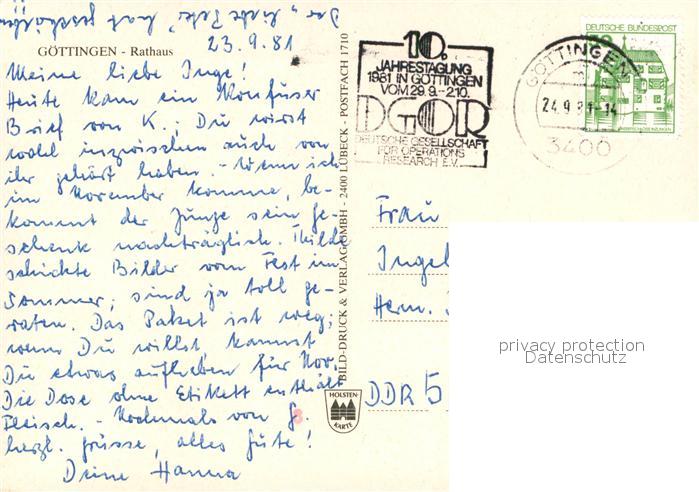 Der „liebe Peter" hat geschrieben
GÖTTINGEN - Rathaus
23.9.81
Meine liebe Inge!
Heute kam ein konfuser
Brief von K.; Du wirst
wohl inzwischen auch von
ihr gehört haben. - Wenn ich
im November komme, be-
kommt der Junge sein Ge-
schenk nachträglich. Thilde
schickte Bilder vom Fest im
Sommer; sind ja toll ge-
raten. Das Paket ist weg;
wenn Du willst, kannst
Du etwas aufheben für Nov.
Die Dose ohne Etikett enthält
Fleisch. - Nochmals von G.
herzl. Grüsse, alles Gute!
Deine Hanna
BILD-DRUCK & VERLAG GMBH - 2400 LÜBECK - POSTFACH 1710
HOLSTEN-
KARTE
10.
JAHRESTAGUNG
1981 IN GÖTTINGEN
VOM 29.9.-2.10.
DGOR
DEUTSCHE GESELLSCHAFT
FÜR OPERATIONS
RESEARCH E.V.
GÖTTINGEN
24.9.81-14
3400
DEUTSCHE BUNDESPOST
Frau
Herm.
DDR 5
privacy protection
Datenschutz